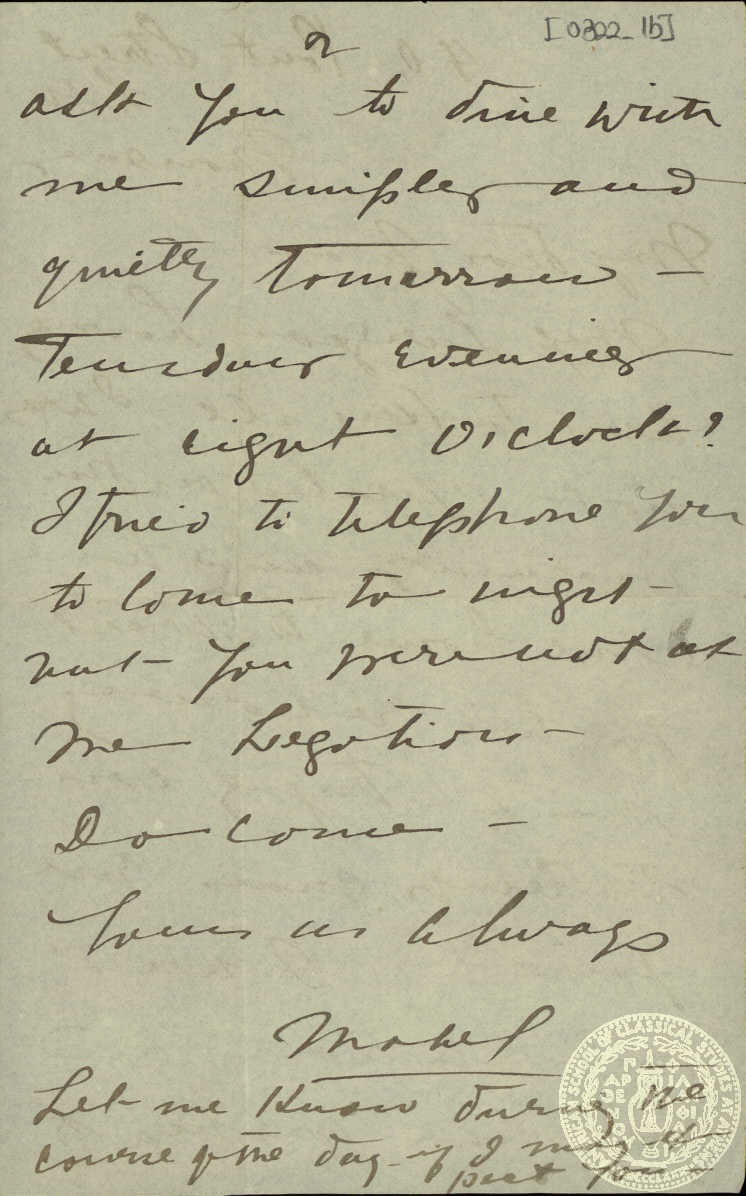 [0322_1b]
2
ask you to dine with
me simpley and
quietly tomorrow -
Teusday evening
at eight O'clock?
I tried to telephone you
to come to night -
but you were not at
the Legation -
Do come -
Yours as always
Mabel
Let me know during the
course of the day - if I may ex
pect you -
AMERICAN SCHOOL OF CLASSICAL STUDIES AT